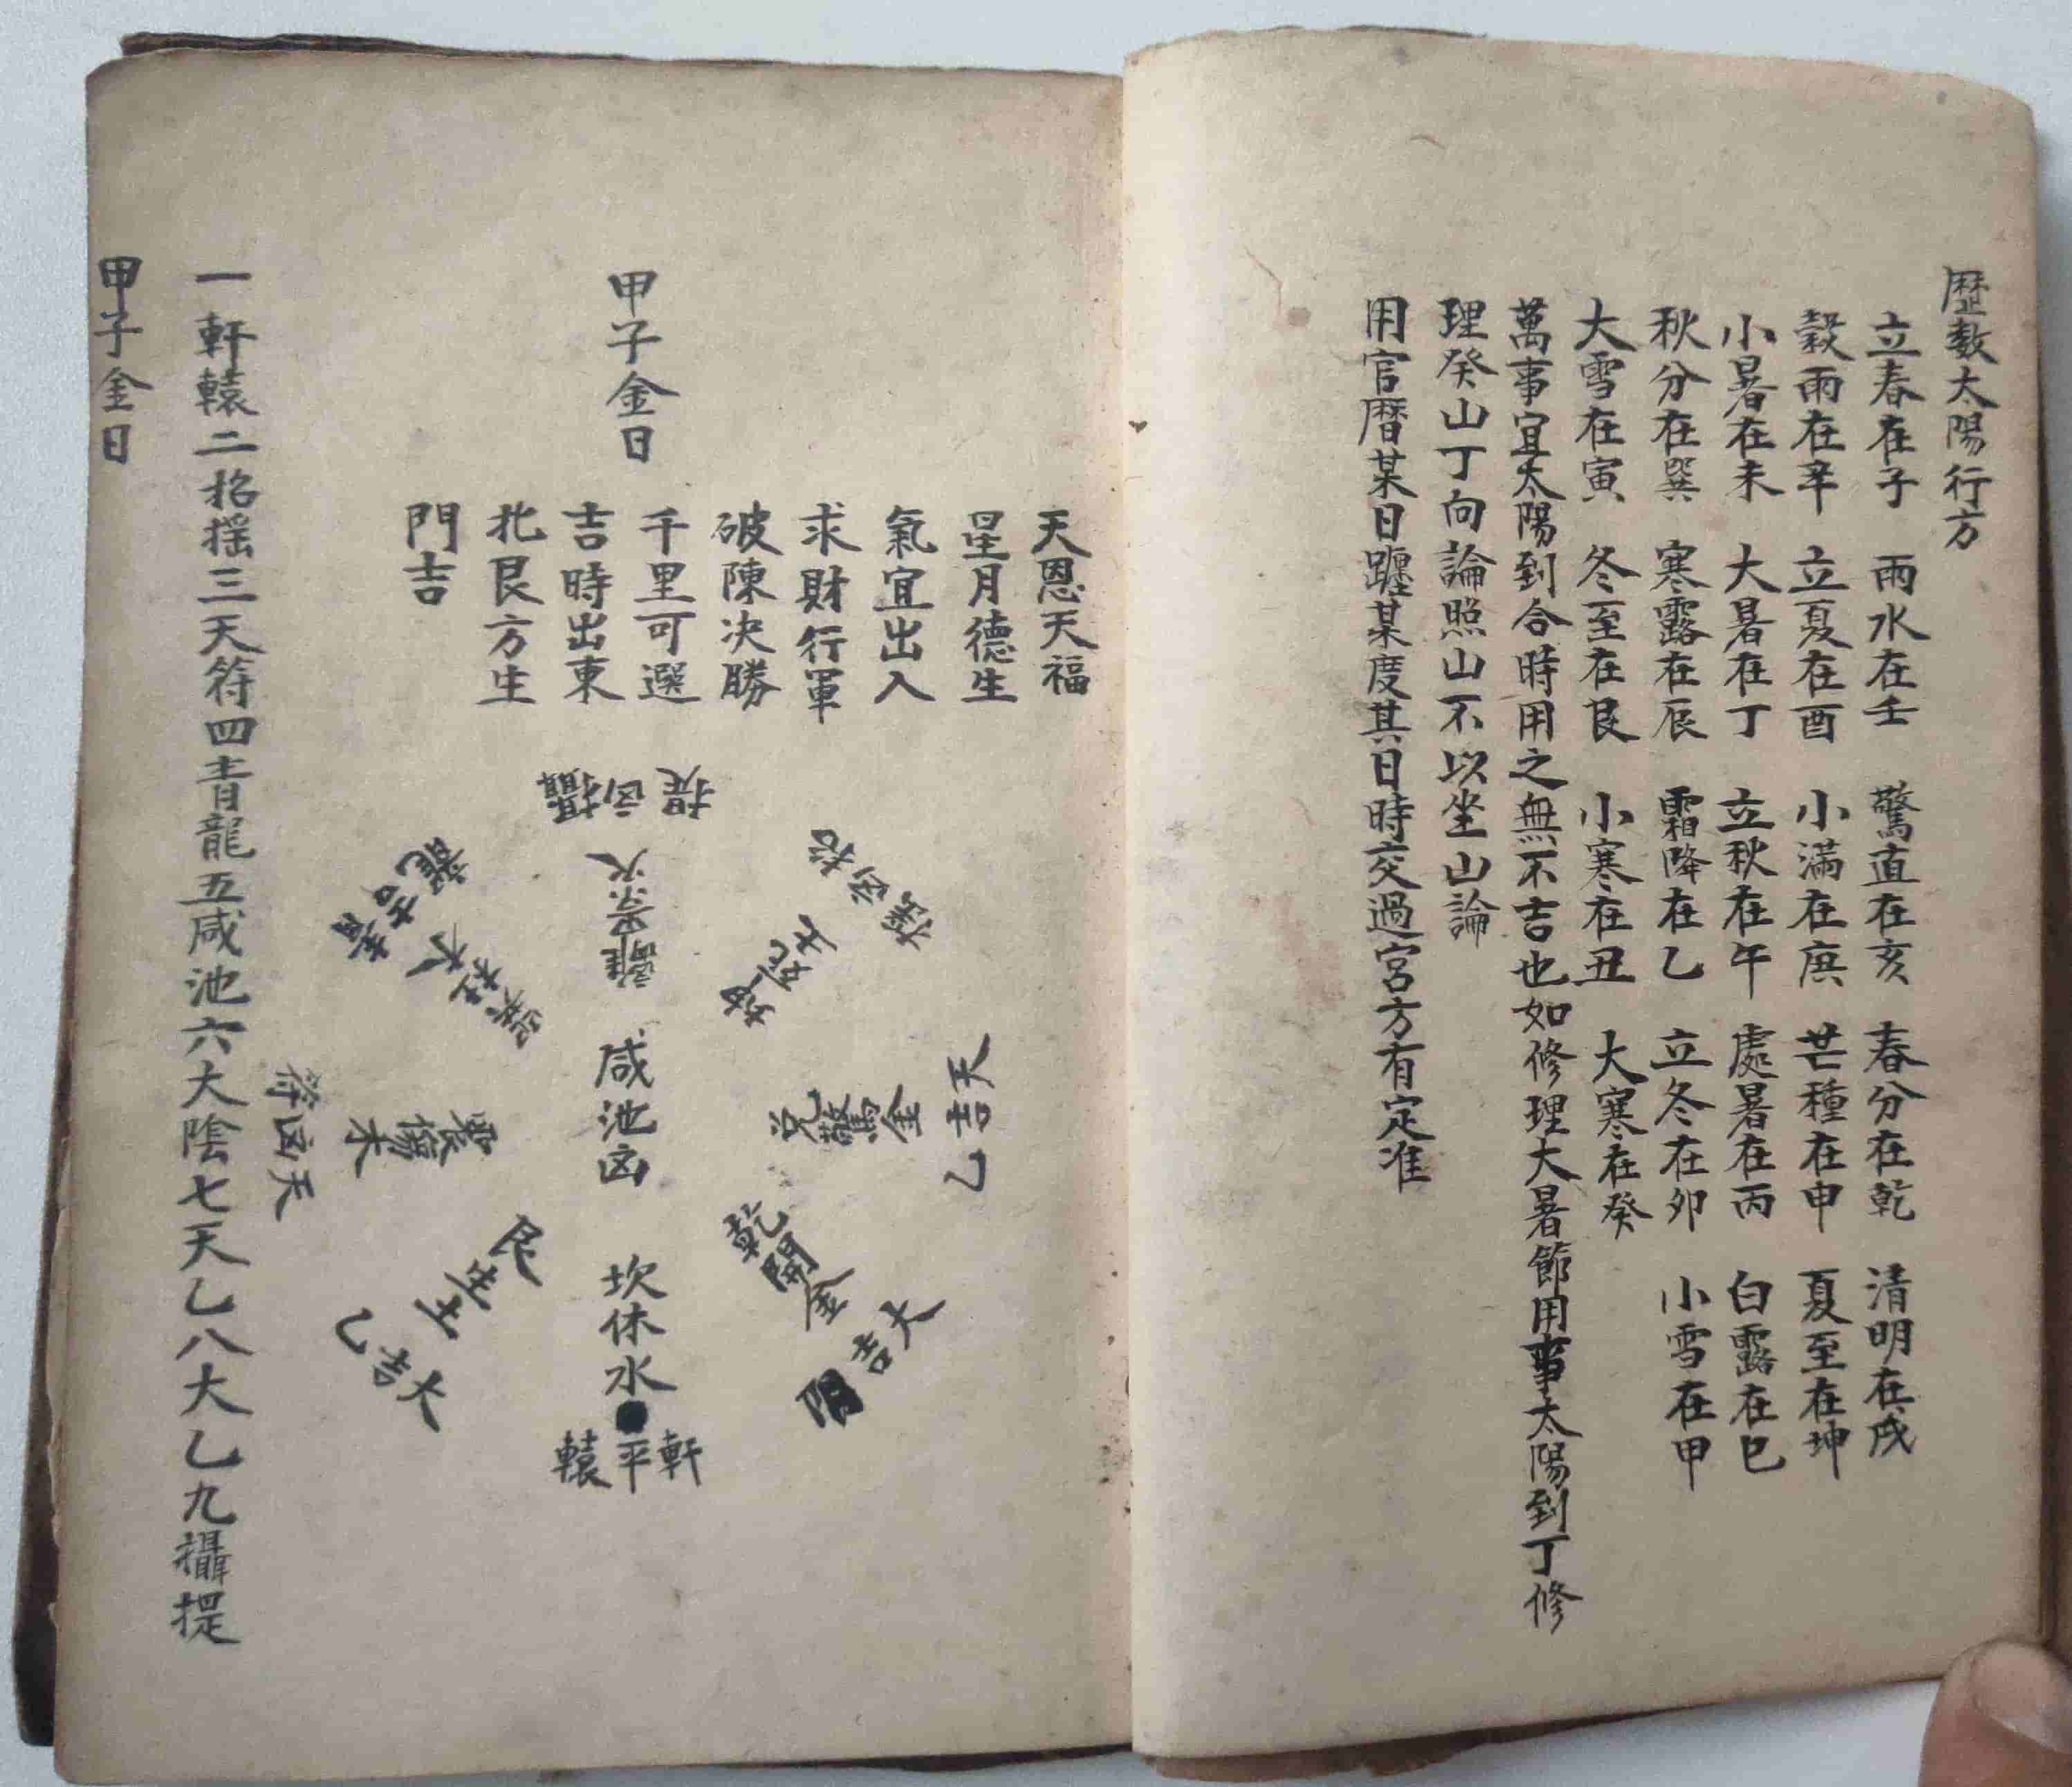 歷數太陽行方
立春在子 雨水在壬 驚直在亥 春分在乾 清明在戌
穀雨在辛 立夏在酉 小滿在庚 芒種在申 夏至在坤
小暑在未 大暑在丁 立秋在午 處暑在丙 白露在巳
秋分在巽 寒露在辰 霜降在乙 立冬在卯 小雪在甲
大雪在寅 冬至在艮 小寒在丑 大寒在癸
萬事宜太陽到合時用之無不吉也如修理大暑節用事太陽到丁修
理癸山丁向論照山不以坐山論
用官曆某日躔某度其日時交過宮方有定准
天恩天福
星月德生
氣宜出入
求財行軍
破陳决勝
千里可選
吉時出東
北艮方生
門吉
甲子金日
提凶攝
離景火
招凶搖
坤死土
青吉龍
巽杜木
咸池凶
兌驚金
天吉乙
震傷木
天凶符
乾開金
大吉陰
艮生土
大吉乙
坎休水
軒平轅
一軒轅二招搖三天符四青龍五咸池六大陰七天乙八大乙九攝提
甲子金日